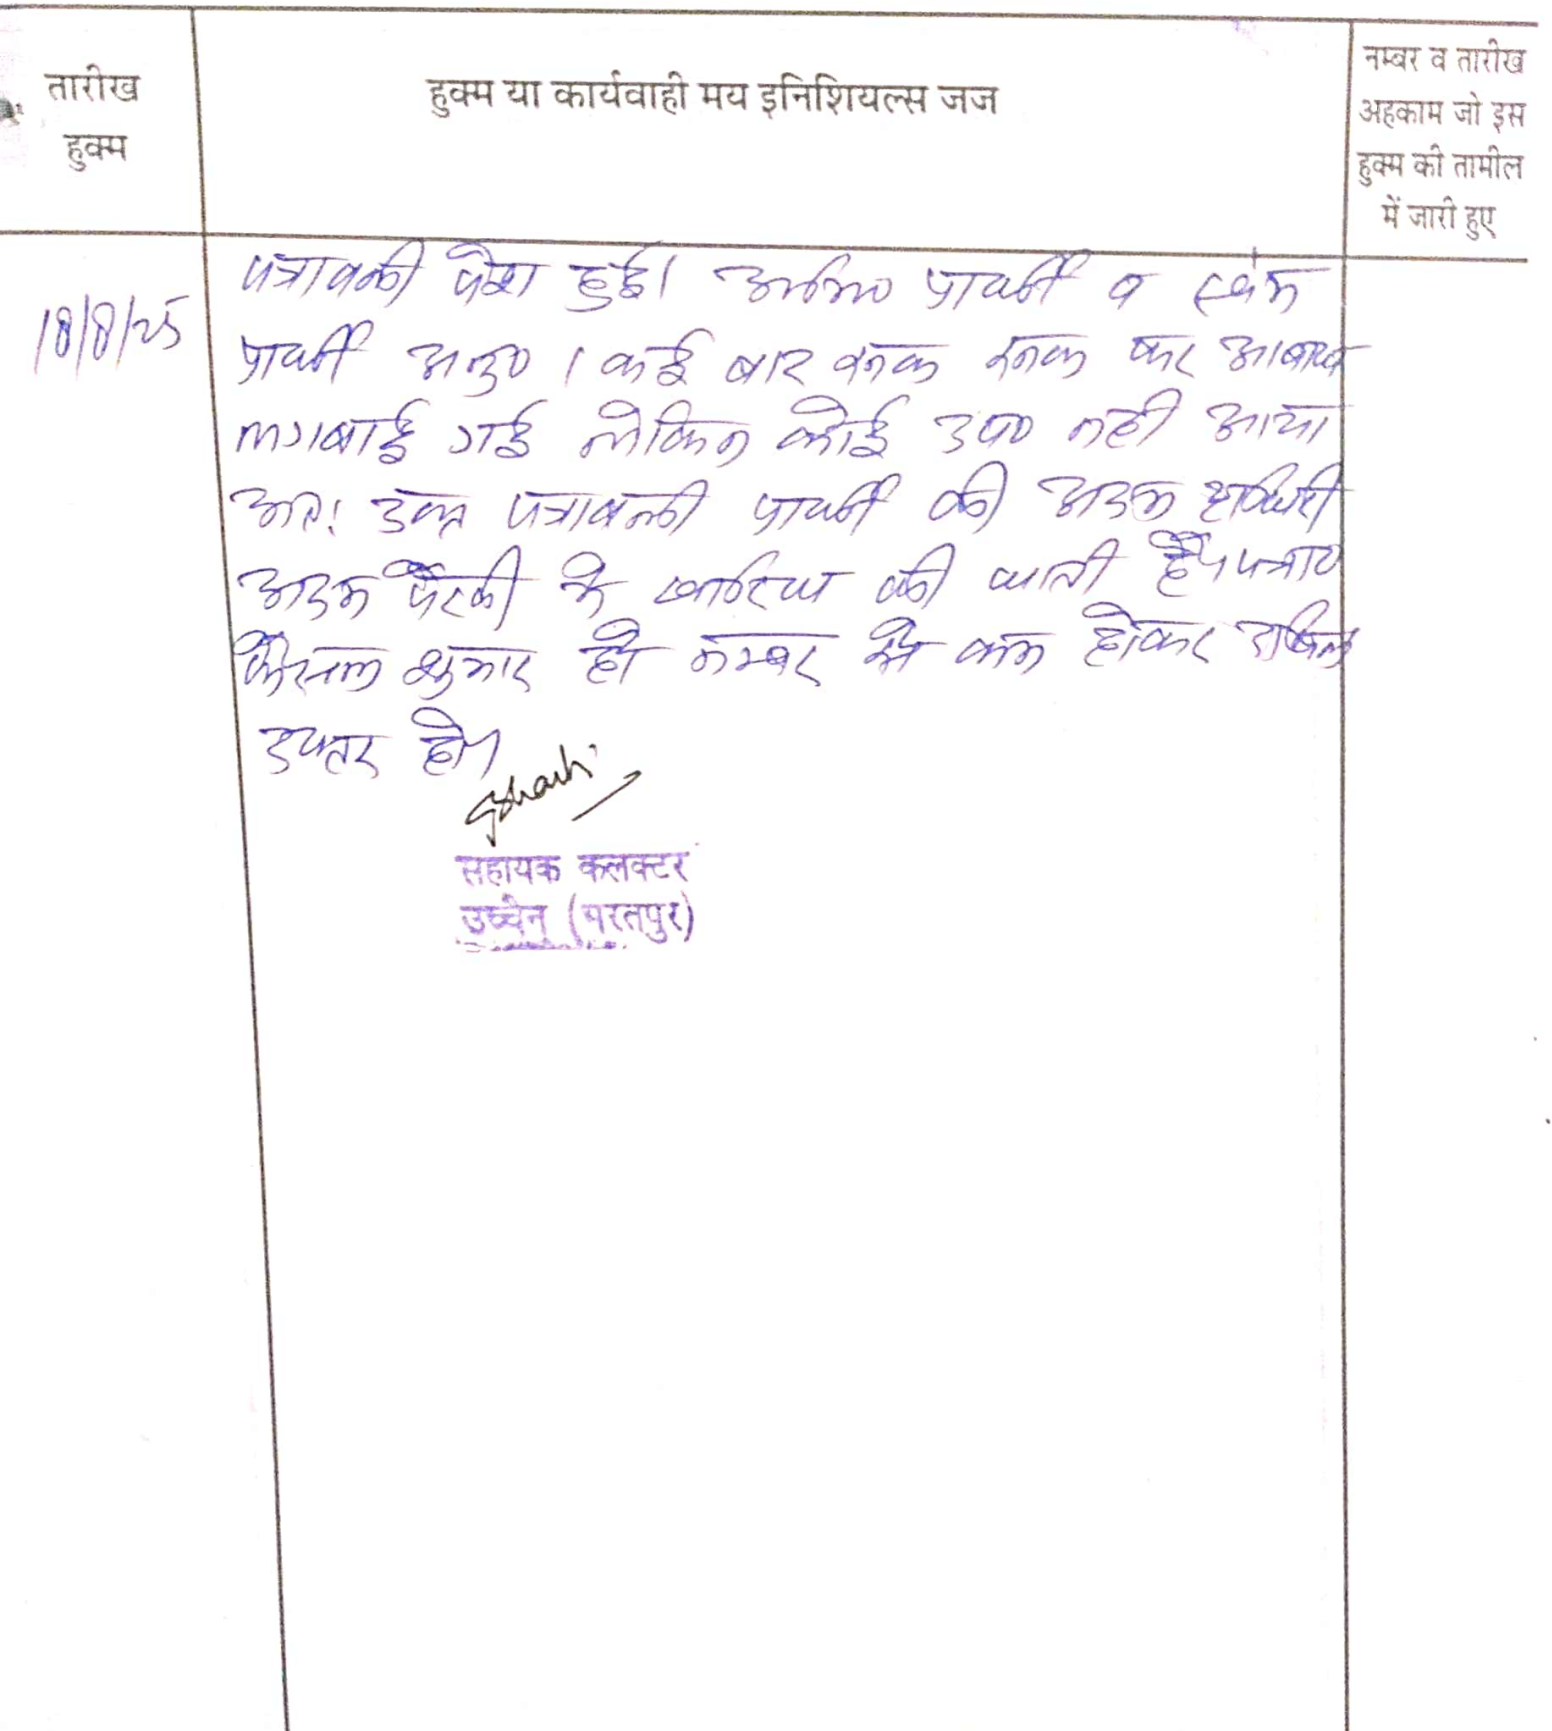 तारीख
हुक्म
हुक्म या कार्यवाही मय इनिशियल्स जज
नम्बर व तारीख
अहकाम जो इस
हुक्म की तामील
में जारी हुए
18/8/25
पत्रावली पेश हुई। अभि० प्रार्थी व स्वंम
प्रार्थी अनु०। कई बार रुनक रुनक कर आबाज
लगबाई गई लेकिन कोई उप० नही आया
अतः उक्त पत्रावली प्रार्थी की अदम हाजिरी
अदम पैरवी मे खारिज की जाती है। पत्रा०
फैसल शुमार हो नम्बर से कम होकर दाखिल
दफ्तर हो।
सहायक कलक्टर
उच्चैन (भरतपुर)